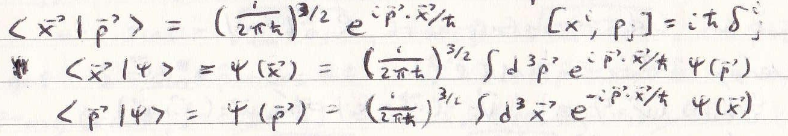 <x⃗|p⃗> = (i/2πħ)^{3/2} e^{i p⃗·x⃗/ħ} [x^i, p_j] = iħ δ^i_j
<x⃗|ψ> = ψ(x⃗) = (i/2πħ)^{3/2} ∫ d^3p⃗ e^{i p⃗·x⃗/ħ} ψ(p⃗)
<p⃗|ψ> = ψ(p⃗) = (i/2πħ)^{3/2} ∫ d^3x⃗ e^{-i p⃗·x⃗/ħ} ψ(x⃗)